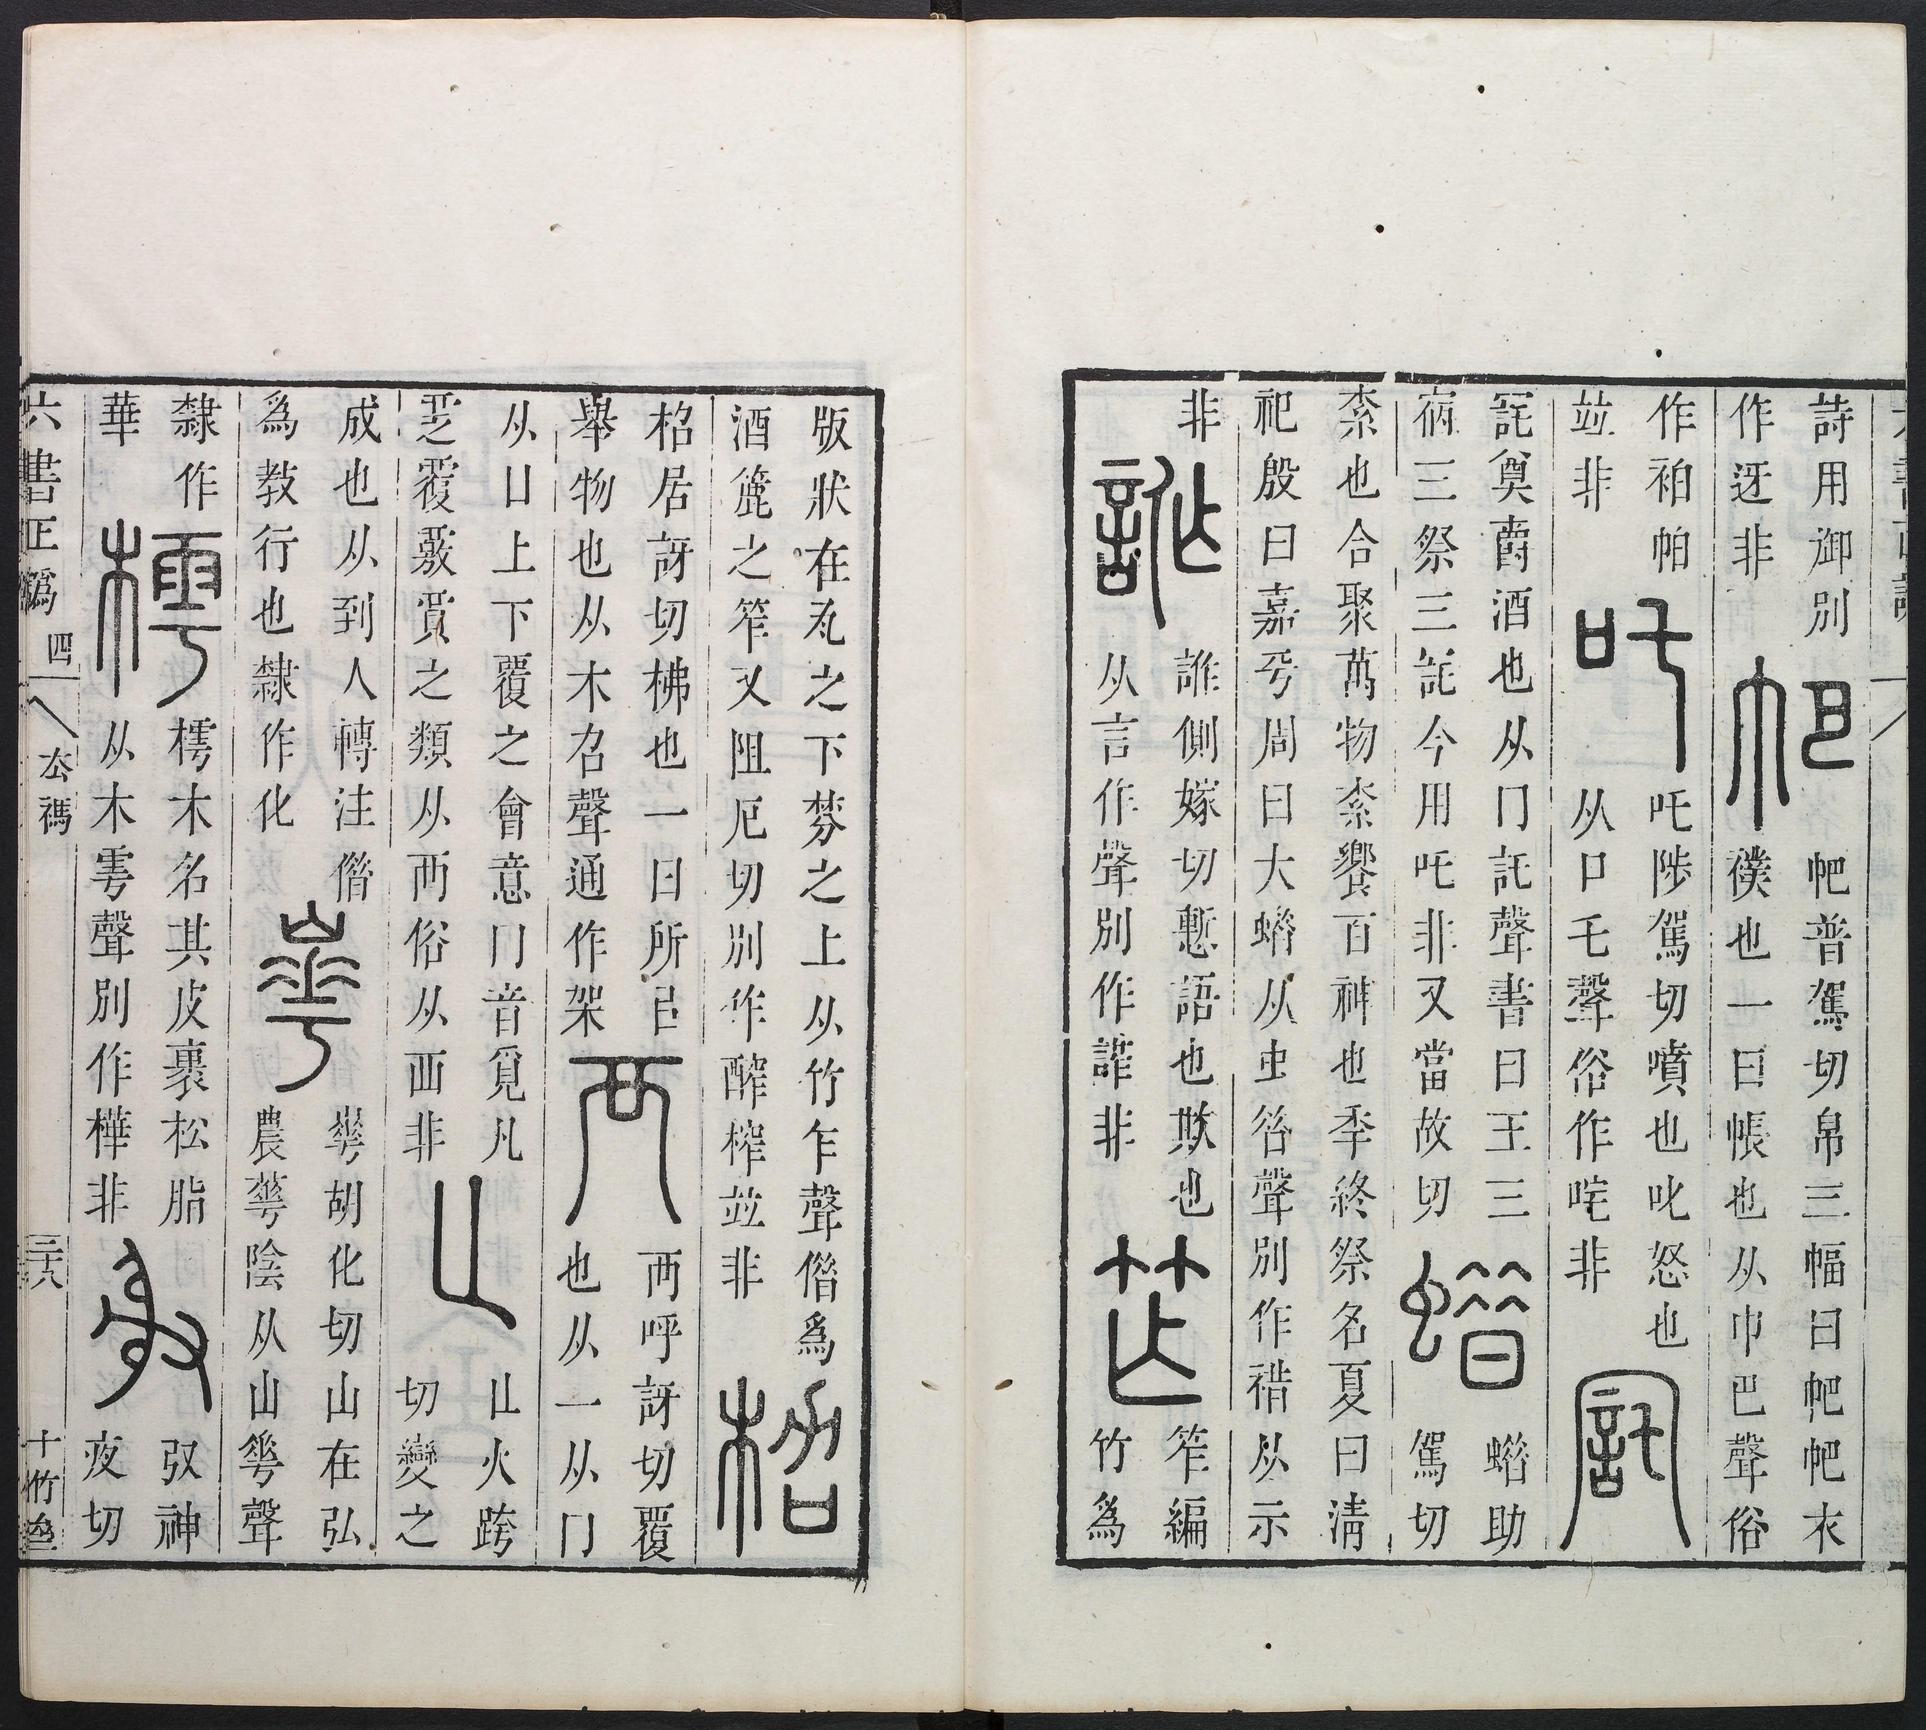 詩用御別
作迓非
帊普駕切帛三幅曰帊帊衣
襆也一曰帳也从巾巴聲俗
作袙帕
竝非
吒陟駕切噴也叱怒也
从口乇聲俗作咤非
奠爵酒也从冂託聲書曰王三
宿三祭三託今用吒非又當故切
蜡助
駕切
索也合聚萬物索饗百神也季終祭名夏曰清
祀殷曰嘉平周曰大蜡从虫昔聲別作䄍从示
非
詐側嫁切慙語也欺也
从言作聲別作詐非
笮編
竹爲
版狀在瓦之下棼之上从竹乍聲借爲
酒簏之笮又阻厄切別作醡榨竝非
枱居訝切柫也一曰所㠯
舉物也从木召聲通作架
襾呼訝切覆
也从一从冂
从凵上下覆之會意冂音覓凡
覂覆覈賈之類从襾俗从西非
火跨
切變之
成也从到人轉注借
爲教行也隸作化
崋胡化切山在弘
農華陰从山華聲
隸作
華
樗木名其皮裹松脂
从木雩聲別作樺非
神
夜切
六書正譌 四 去禡 二十八 十竹齋